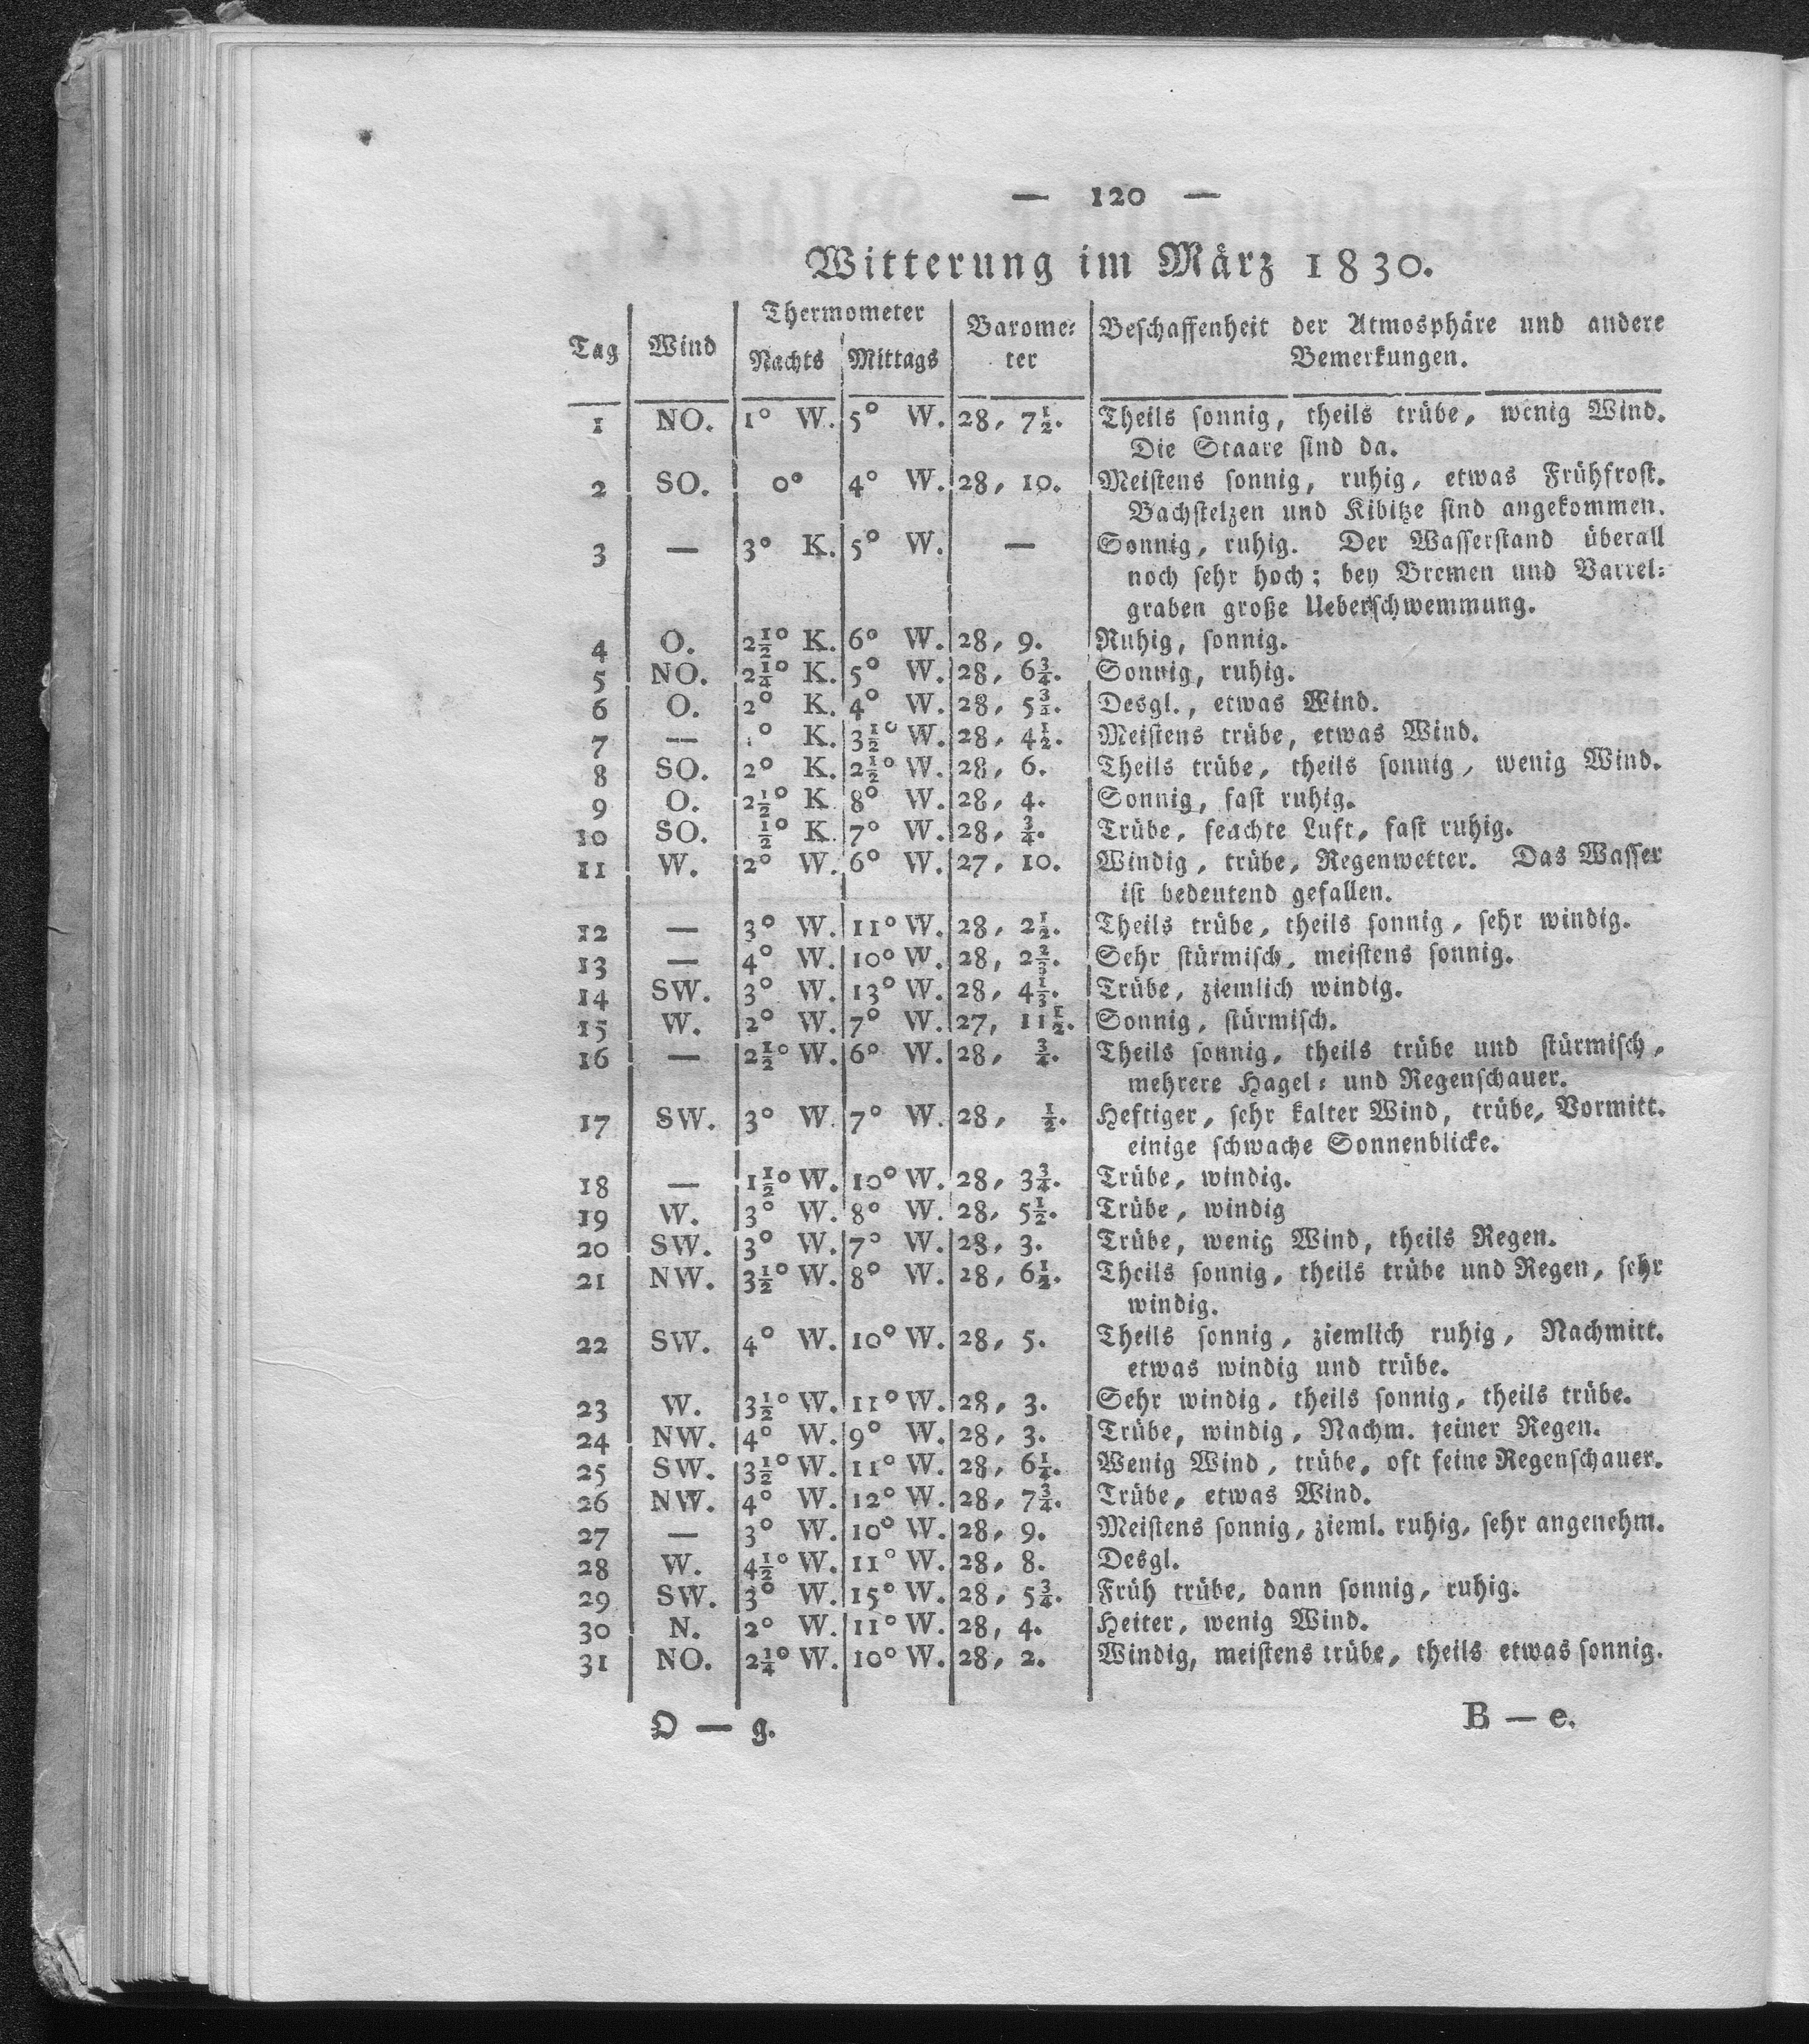 — 120 —
Witterung im März 1830.
Tag | Wind | Thermometer Nachts | Mittags | Barome- ter | Beschaffenheit der Atmosphäre und andere Bemerkungen.
1 | NO. | 1° W. | 5° W. | 28, 7½. | Theils sonnig, theils trübe, wenig Wind.
Die Staare sind da.
2 | SO. | 0° | 4° W. | 28, 10. | Meistens sonnig, ruhig, etwas Frühfrost.
Bachstelzen und Kibitze sind angekommen.
3 | — | 3° K. | 5° W. | — | Sonnig, ruhig. Der Wasserstand überall
noch sehr hoch; bey Bremen und Varrel-
graben große Ueberschwemmung.
4 | O. | 2½° K. | 6° W. | 28, 9. | Ruhig, sonnig.
5 | NO. | 2¼° K. | 5° W. | 28, 6¾. | Sonnig, ruhig.
6 | O. | 2° K. | 4° W. | 28, 5¾. | Desgl., etwas Wind.
7 | — | ° K. | 3½° W. | 28, 4½. | Meistens trübe, etwas Wind.
8 | SO. | 2° K. | 2½° W. | 28, 6. | Theils trübe, theils sonnig, wenig Wind.
9 | O. | 2½° K | 8° W. | 28, 4. | Sonnig, fast ruhig.
10 | SO. | ½° K | 7° W. | 28, ¾. | Trübe, feachte Luft, fast ruhig.
11 | W. | 2° W. | 6° W. | 27, 10. | Windig, trübe, Regenwetter. Das Wasser
ist bedeutend gefallen.
12 | — | 3° W. | 11° W. | 28, 2½. | Theils trübe, theils sonnig, sehr windig.
13 | — | 4° W. | 10° W. | 28, 2⅔. | Sehr stürmisch, meistens sonnig.
14 | SW. | 3° W. | 13° W. | 28, 4⅓. | Trübe, ziemlich windig.
15 | W. | 2° W. | 7° W. | 27, 11½. | Sonnig, stürmisch.
16 | — | 2½° W. | 6° W. | 28, ¾. | Theils sonnig, theils trübe und stürmisch,
mehrere Hagel- und Regenschauer.
17 | SW. | 3° W. | 7° W. | 28, ½. | Heftiger, sehr kalter Wind, trübe, Vormitt.
einige schwache Sonnenblicke.
18 | — | 1½° W. | 10° W. | 28, 3¾. | Trübe, windig.
19 | W. | 3° W. | 8° W. | 28, 5½. | Trübe, windig
20 | SW. | 3° W. | 7° W. | 28, 3. | Trübe, wenig Wind, theils Regen.
21 | NW. | 3½° W. | 8° W. | 28, 6½. | Theils sonnig, theils trübe und Regen, sehr
windig.
22 | SW. | 4° W. | 10° W. | 28, 5. | Theils sonnig, ziemlich ruhig, Nachmitt.
etwas windig und trübe.
23 | W. | 3½° W. | 11° W. | 28, 3. | Sehr windig, theils sonnig, theils trübe.
24 | NW. | 4° W. | 9° W. | 28, 3. | Trübe, windig, Nachm. feiner Regen.
25 | SW. | 3½° W. | 11° W. | 28, 6¼. | Wenig Wind, trübe, oft feine Regenschauer.
26 | NW. | 4° W. | 12° W. | 28, 7¾. | Trübe, etwas Wind.
27 | — | 3° W. | 10° W. | 28, 9. | Meistens sonnig, zieml. ruhig, sehr angenehm.
28 | W. | 4½° W. | 11° W. | 28, 8. | Desgl.
29 | SW. | 3° W. | 15° W. | 28, 5¾. | Früh trübe, dann sonnig, ruhig.
30 | N. | 2° W. | 11° W. | 28, 4. | Heiter, wenig Wind.
31 | NO. | 2¼° W. | 10° W. | 28, 2. | Windig, meistens trübe, theils etwas sonnig.
O — g. B — e.